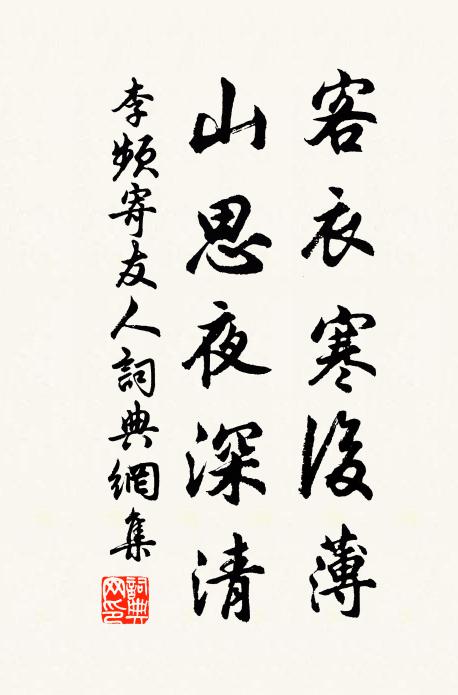 客衣寒後薄
山思夜深清
李頻寄友人詞典網集
詞典網印